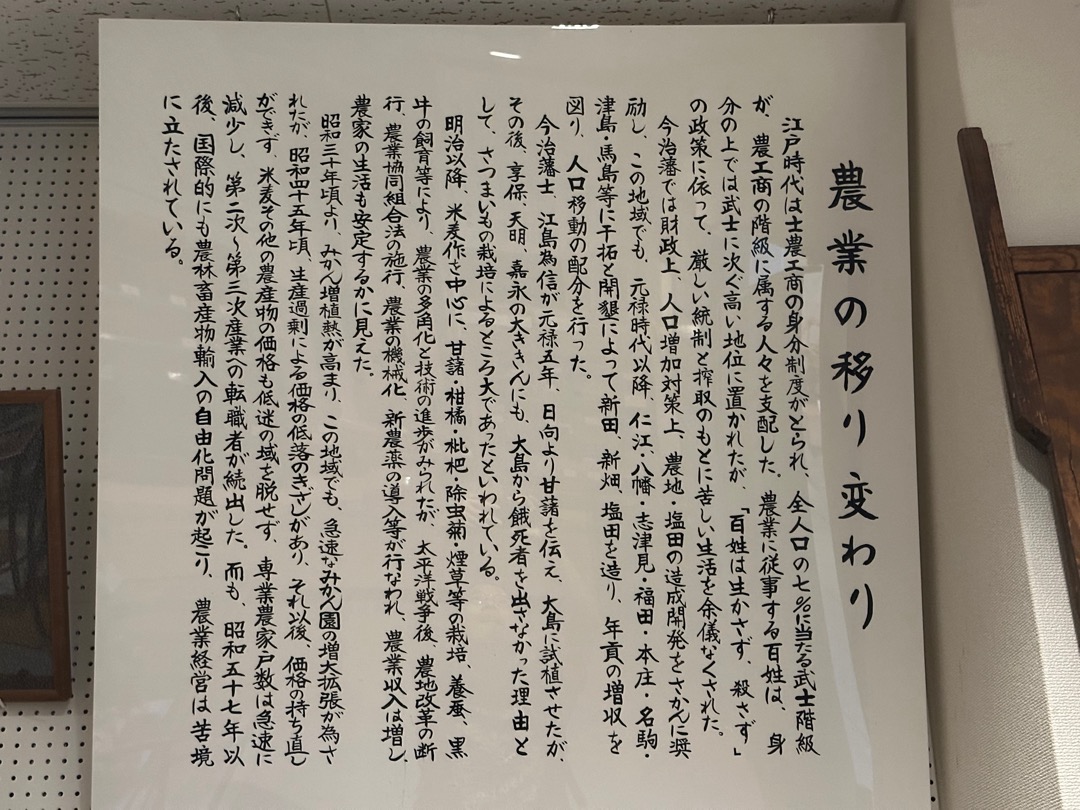 農業の移り変わり
江戸時代は士農工商の身分制度がとられ、全人口の七%に当たる武士階級
が、農工商の階級に属する人々を支配した。農業に従事する百姓は、身
分の上では武士に次ぐ高い地位に置かれたが、「百姓は生かさず、殺さず」
の政策に依って、厳しい統制と搾取のもとに苦しい生活を余儀なくされた。
今治藩では財政上、人口増加対策上、農地・塩田の造成開発をさかんに奨
励し、この地域でも、元禄時代以降、仁江・八幡・志津見・福田・本庄・名駒・
津島・馬島等に干拓と開墾によって新田、新畑、塩田を造り、年貢の増収を
図り、人口移動の配分を行った。
今治藩士、江島為信が元禄五年、日向より甘藷を伝え、大島に試植させたが、
その後、享保、天明、嘉永の大ききんにも、大島から餓死者を出さなかった理由と
して、さつまいもの栽培によるところ大であったといわれている。
明治以降、米麦作を中心に、甘藷・柑橘・枇杷・除虫菊・煙草等の栽培、養蚕、黒
牛の飼育等により、農業の多角化と技術の進歩がみられたが、太平洋戦争後、農地改革の断
行、農業協同組合法の施行、農業の機械化、新農薬の導入等が行なわれ、農業収入は増し、
農家の生活も安定するかに見えた。
昭和三十年頃より、みかん増植熱が高まり、この地域でも、急速なみかん園の増大拡張が為さ
れたが、昭和四十五年頃、生産過剰による価格の低落のきざしがあり、それ以後、価格の持ち直し
ができず、米麦その他の農産物の価格も低迷の域を脱せず、専業農家戸数は急速に
減少し、第二次〜第三次産業への転職者が続出した。而も、昭和五十七年以
後、国際的にも農林畜産物輸入の自由化問題が起こり、農業経営は苦境
に立たされている。